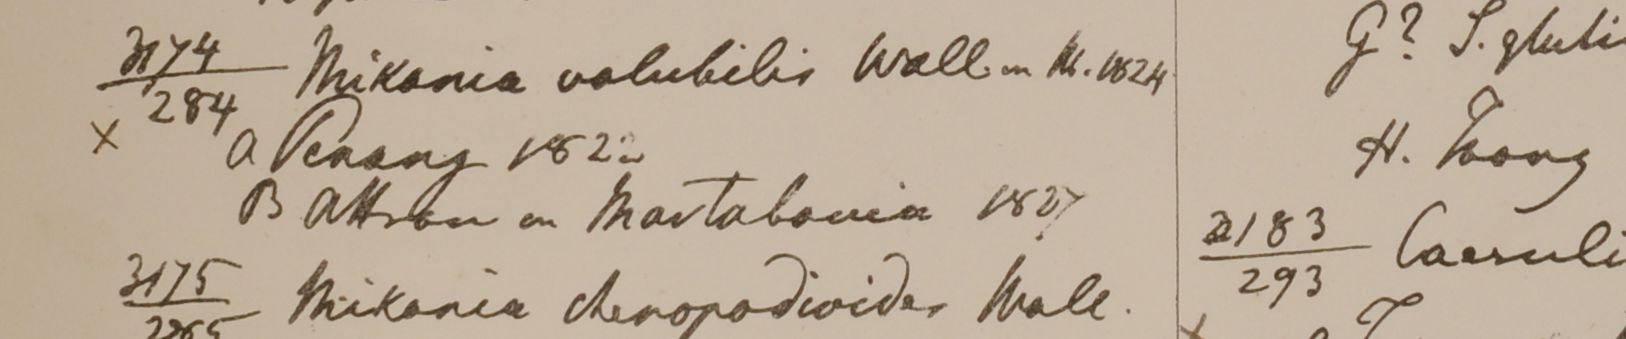 3174
284
Mikania volubilis Wall in
1824
x
a Penang 1822
B Attran in Martabania 1827
3175
285
Mikania chenopodioides Wall.
G? S. gluti
H.
3183
293